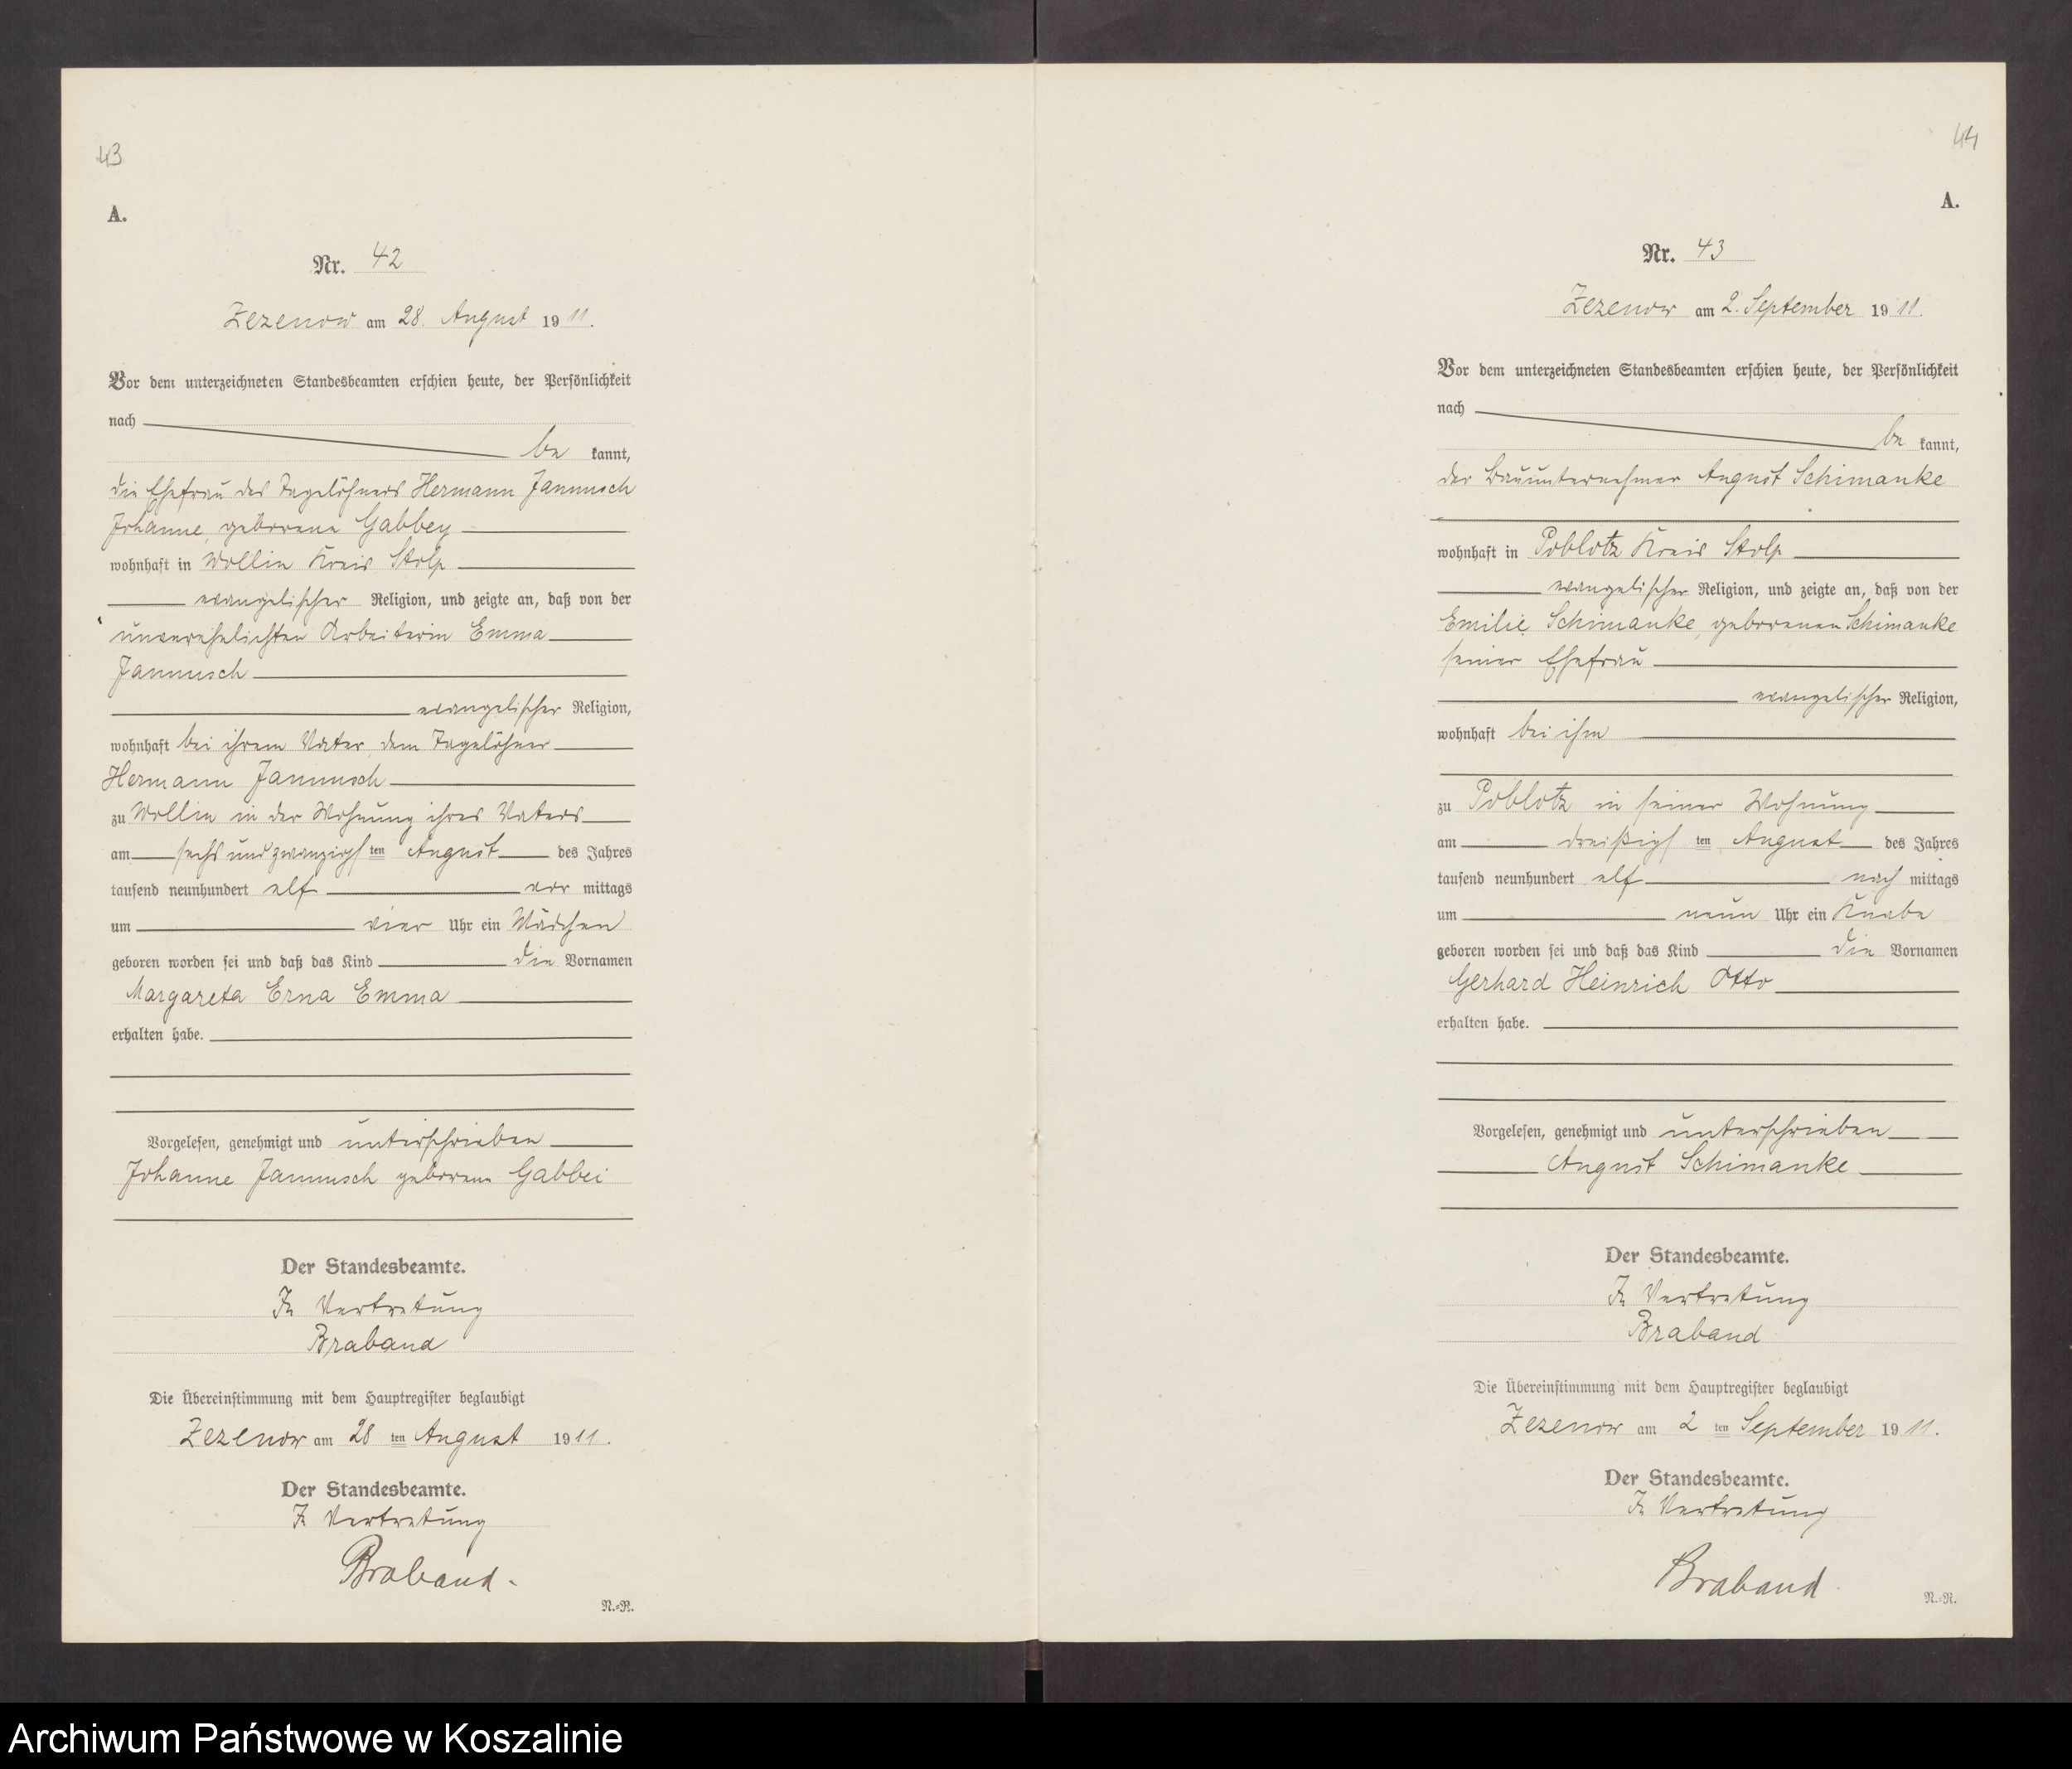 43
A.
Nr. 42
Zezenow am 28. August 1911.
Vor dem unterzeichneten Standesbeamten erschien heute, der Persönlichkeit
nach
be kannt,
die Ehefrau des Tagelöhners Hermann Jannusch
Johanne, geborene Gabbey
wohnhaft in Wollin Kreis Stolp
evangelischer Religion, und zeigte an, daß von der
unverehelichten Arbeiterin Emma
Jannusch
evangelischer Religion,
wohnhaft bei ihrem Vater, dem Tagelöhner
Hermann Jannusch
zu Wollin in der Wohnung ihres Vaters
am sechs und zwanzigsten August des Jahres
tausend neunhundert elf vor mittags
um vier Uhr ein Mädchen
geboren worden sei und daß das Kind die Vornamen
Margareta Erna Emma
erhalten habe.
Vorgelesen, genehmigt und unterschrieben
Johanne Jannusch geborene Gabbei
Der Standesbeamte.
In Vertretung
Braband
Die Übereinstimmung mit dem Hauptregister beglaubigt
Zezenow am 28 ten August 1911.
Der Standesbeamte.
In Vertretung
Braband.
N.=R.
44
A.
Nr. 43
Zezenow am 2. September 1911.
Vor dem unterzeichneten Standesbeamten erschien heute, der Persönlichkeit
nach
be kannt,
der Bauunternehmer August Schimanke
wohnhaft in Poblotz Kreis Stolp
evangelischer Religion, und zeigte an, daß von der
Emilie Schimanke, geborenen Schimanke
seiner Ehefrau
evangelischer Religion,
wohnhaft bei ihm
zu Poblotz in seiner Wohnung
am dreißigsten August des Jahres
tausend neunhundert elf nach mittags
um neun Uhr ein Knabe
geboren worden sei und daß das Kind die Vornamen
Gerhard Heinrich Otto
erhalten habe.
Vorgelesen, genehmigt und unterschrieben
August Schimanke
Der Standesbeamte.
In Vertretung
Braband
Die Übereinstimmung mit dem Hauptregister beglaubigt
Zezenow am 2 ten September 1911.
Der Standesbeamte.
In Vertretung
Braband
N.=R.
Archiwum Państwowe w Koszalinie